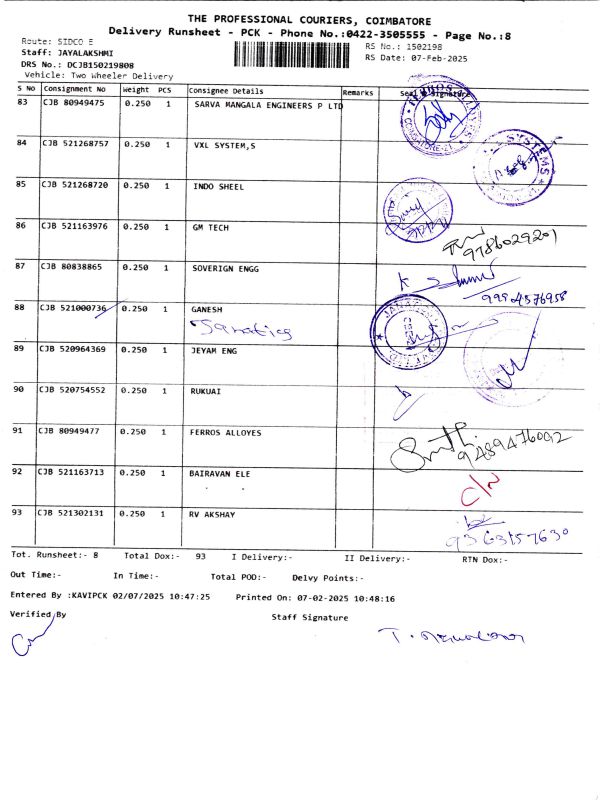 THE PROFESSIONAL COURIERS, COIMBATORE
Delivery Runsheet - PCK - Phone No.:0422-3505555 - Page No.:8
Route: SIDCO E
RS No.: 1502198
Staff: JAYALAKSHMI
RS Date: 07-Feb-2025
DRS No.: DCJB150219808
Vehicle: Two Wheeler Delivery
S No Consignment No Weight PCS Consignee Details Remarks Seal & Signature
83 CJB 80949475 0.250 1 SARVA MANGALA ENGINEERS P LTD
84 CJB 521268757 0.250 1 VXL SYSTEM,S
85 CJB 521268720 0.250 1 INDO SHEEL
86 CJB 521163976 0.250 1 GM TECH
9786029201
87 CJB 80838865 0.250 1 SOVERIGN ENGG
9994576958
88 CJB 521000736 0.250 1 GANESH
89 CJB 520964369 0.250 1 JEYAM ENG
90 CJB 520754552 0.250 1 RUKUAI
91 CJB 80949477 0.250 1 FERROS ALLOYES
9489476092
92 CJB 521163713 0.250 1 BAIRAVAN ELE
C/N
93 CJB 521302131 0.250 1 RV AKSHAY
9363157630
Tot. Runsheet:- 8 Total Dox:- 93 I Delivery:- II Delivery:- RTN Dox:-
Out Time:- In Time:- Total POD:- Delvy Points:-
Entered By :KAVIPCK 02/07/2025 10:47:25 Printed On: 07-02-2025 10:48:16
Verified By Staff Signature